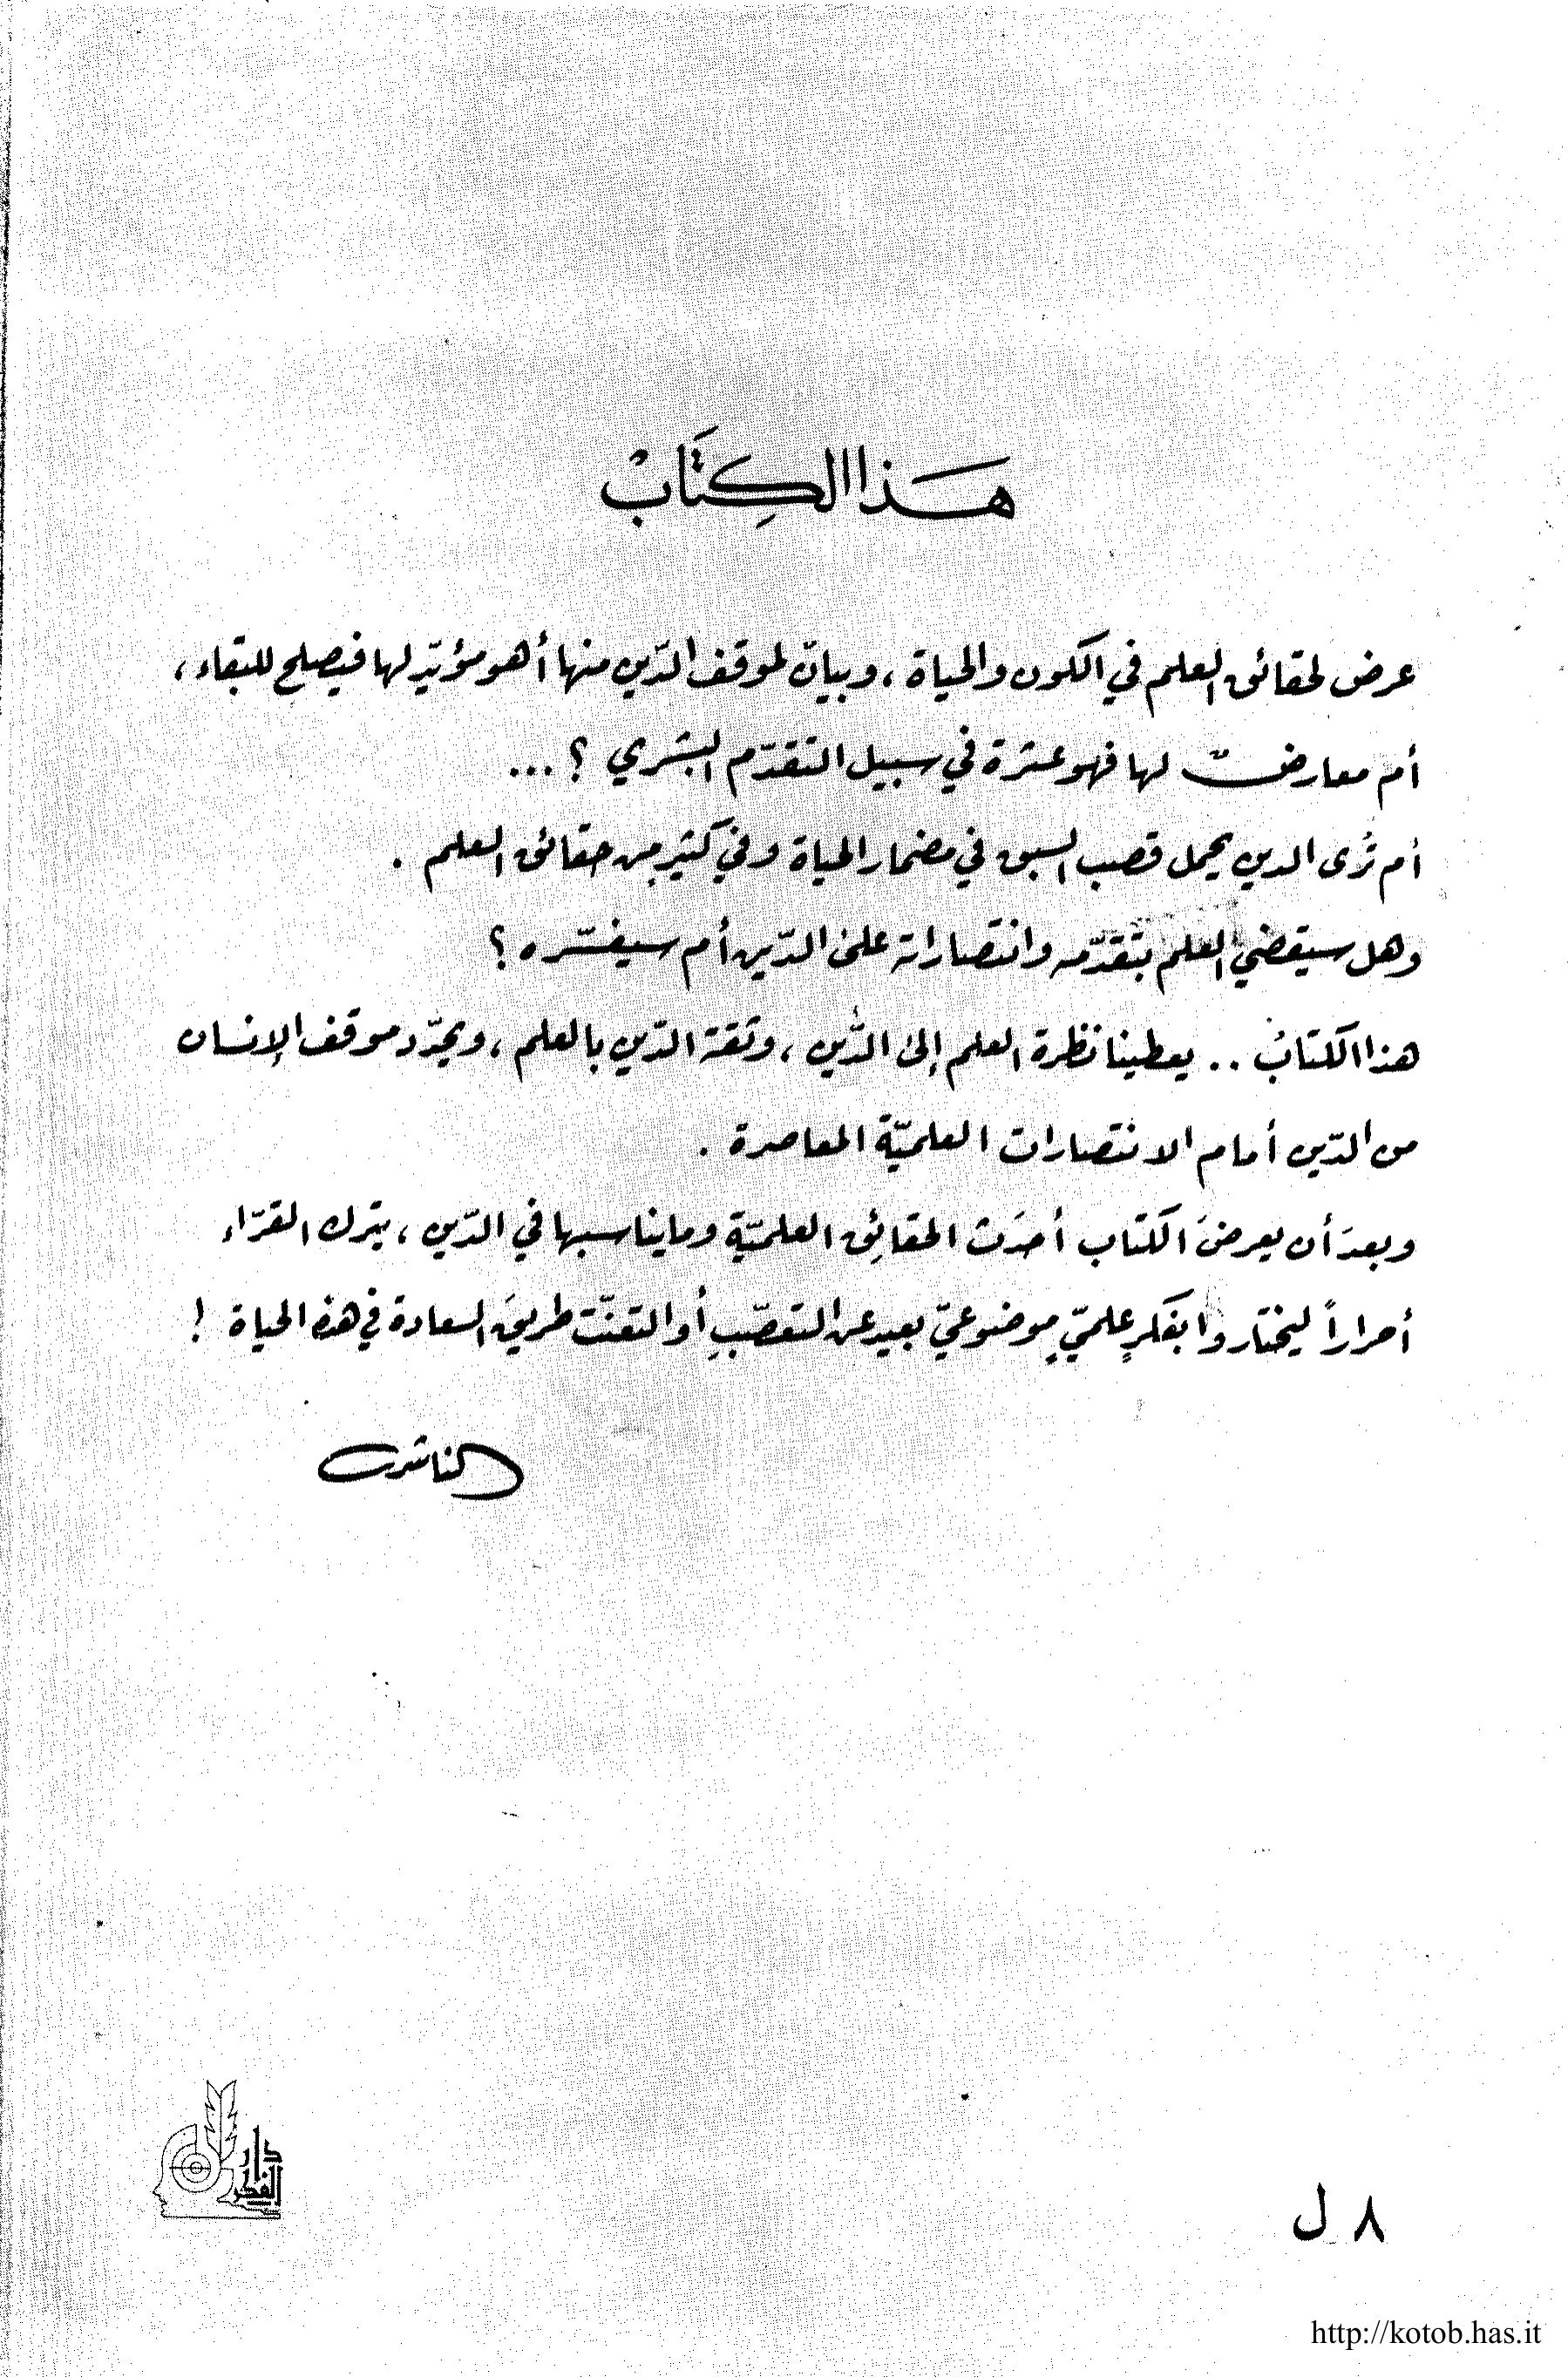 هَذا الكِتَابْ
عرض لحقائق العلم في الكون والحياة ، وبيان لموقف الدّين منها أهو مؤيّد لها فيصلح للبقاء ،
أم معارضٌ لها فهو عثرة في سبيل التقدّم البشري ؟ ...
أم تُرى الدين يحمل قصب السبق في مضمار الحياة وفي كثير من حقائق العلم .
وهل سيقضي العلم بتقدّمه وانتصاراته على الدّين أم سيفسّره ؟
هذا الكتابُ .. يعطينا نظرة العلم إلى الدّين ، وثقة الدّين بالعلم ، ويحدّد موقف الإنسان
من الدّين أمام الانتصارات العلميّة المعاصرة .
وبعدَ أن يعرضَ الكتاب أحدَث الحقائِق العلميّة وما يناسبها في الدّين ، يترك القرّاء
أحراراً ليختاروا بفكرٍ علميّ موضوعيّ بعيد عن التعصّبِ أو التعنّت طريقَ السعادة في هذه الحياة !
الناشر
دار الفكر
٨ ل
http://kotob.has.it